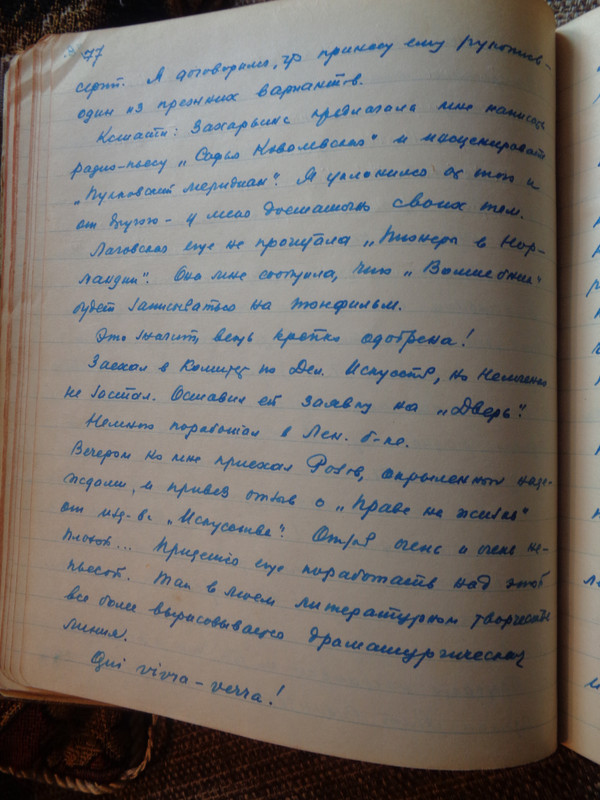 77
серт. Я договорился, что принесу ему рукопись -
один из прежних вариантов.
Кстати: Захарьина предлагала мне написать
радио-пьесу „Софья Ковалевская" и инсценировать
„Пулковский меридиан". Я уклонился от того и
от другого - у меня достаточно своих тем.
Лаговская еще не прочитала „Пионеры в Нор-
мандии". Она мне сообщила, что „Волшебник"
будет записываться на тонфильм.
Это значит, вещь крепко одобрена!
Заехал в Комитет по Дел. Искусств, но
не застал. Оставил ей заявку на „Дверь".
Немного поработал в Лен. б-ке.
Вечером ко мне приехал окрыленный наде-
ждами, и привез отзыв о „Праве на жизнь"
от изд-ва „Искусства". Отзыв очень и очень не-
плохой... Придется еще поработать над этой
пьесой. Так в моем литературном творчестве
все более вырисовывается драматургическая
линия.
Qui vivra - verra!